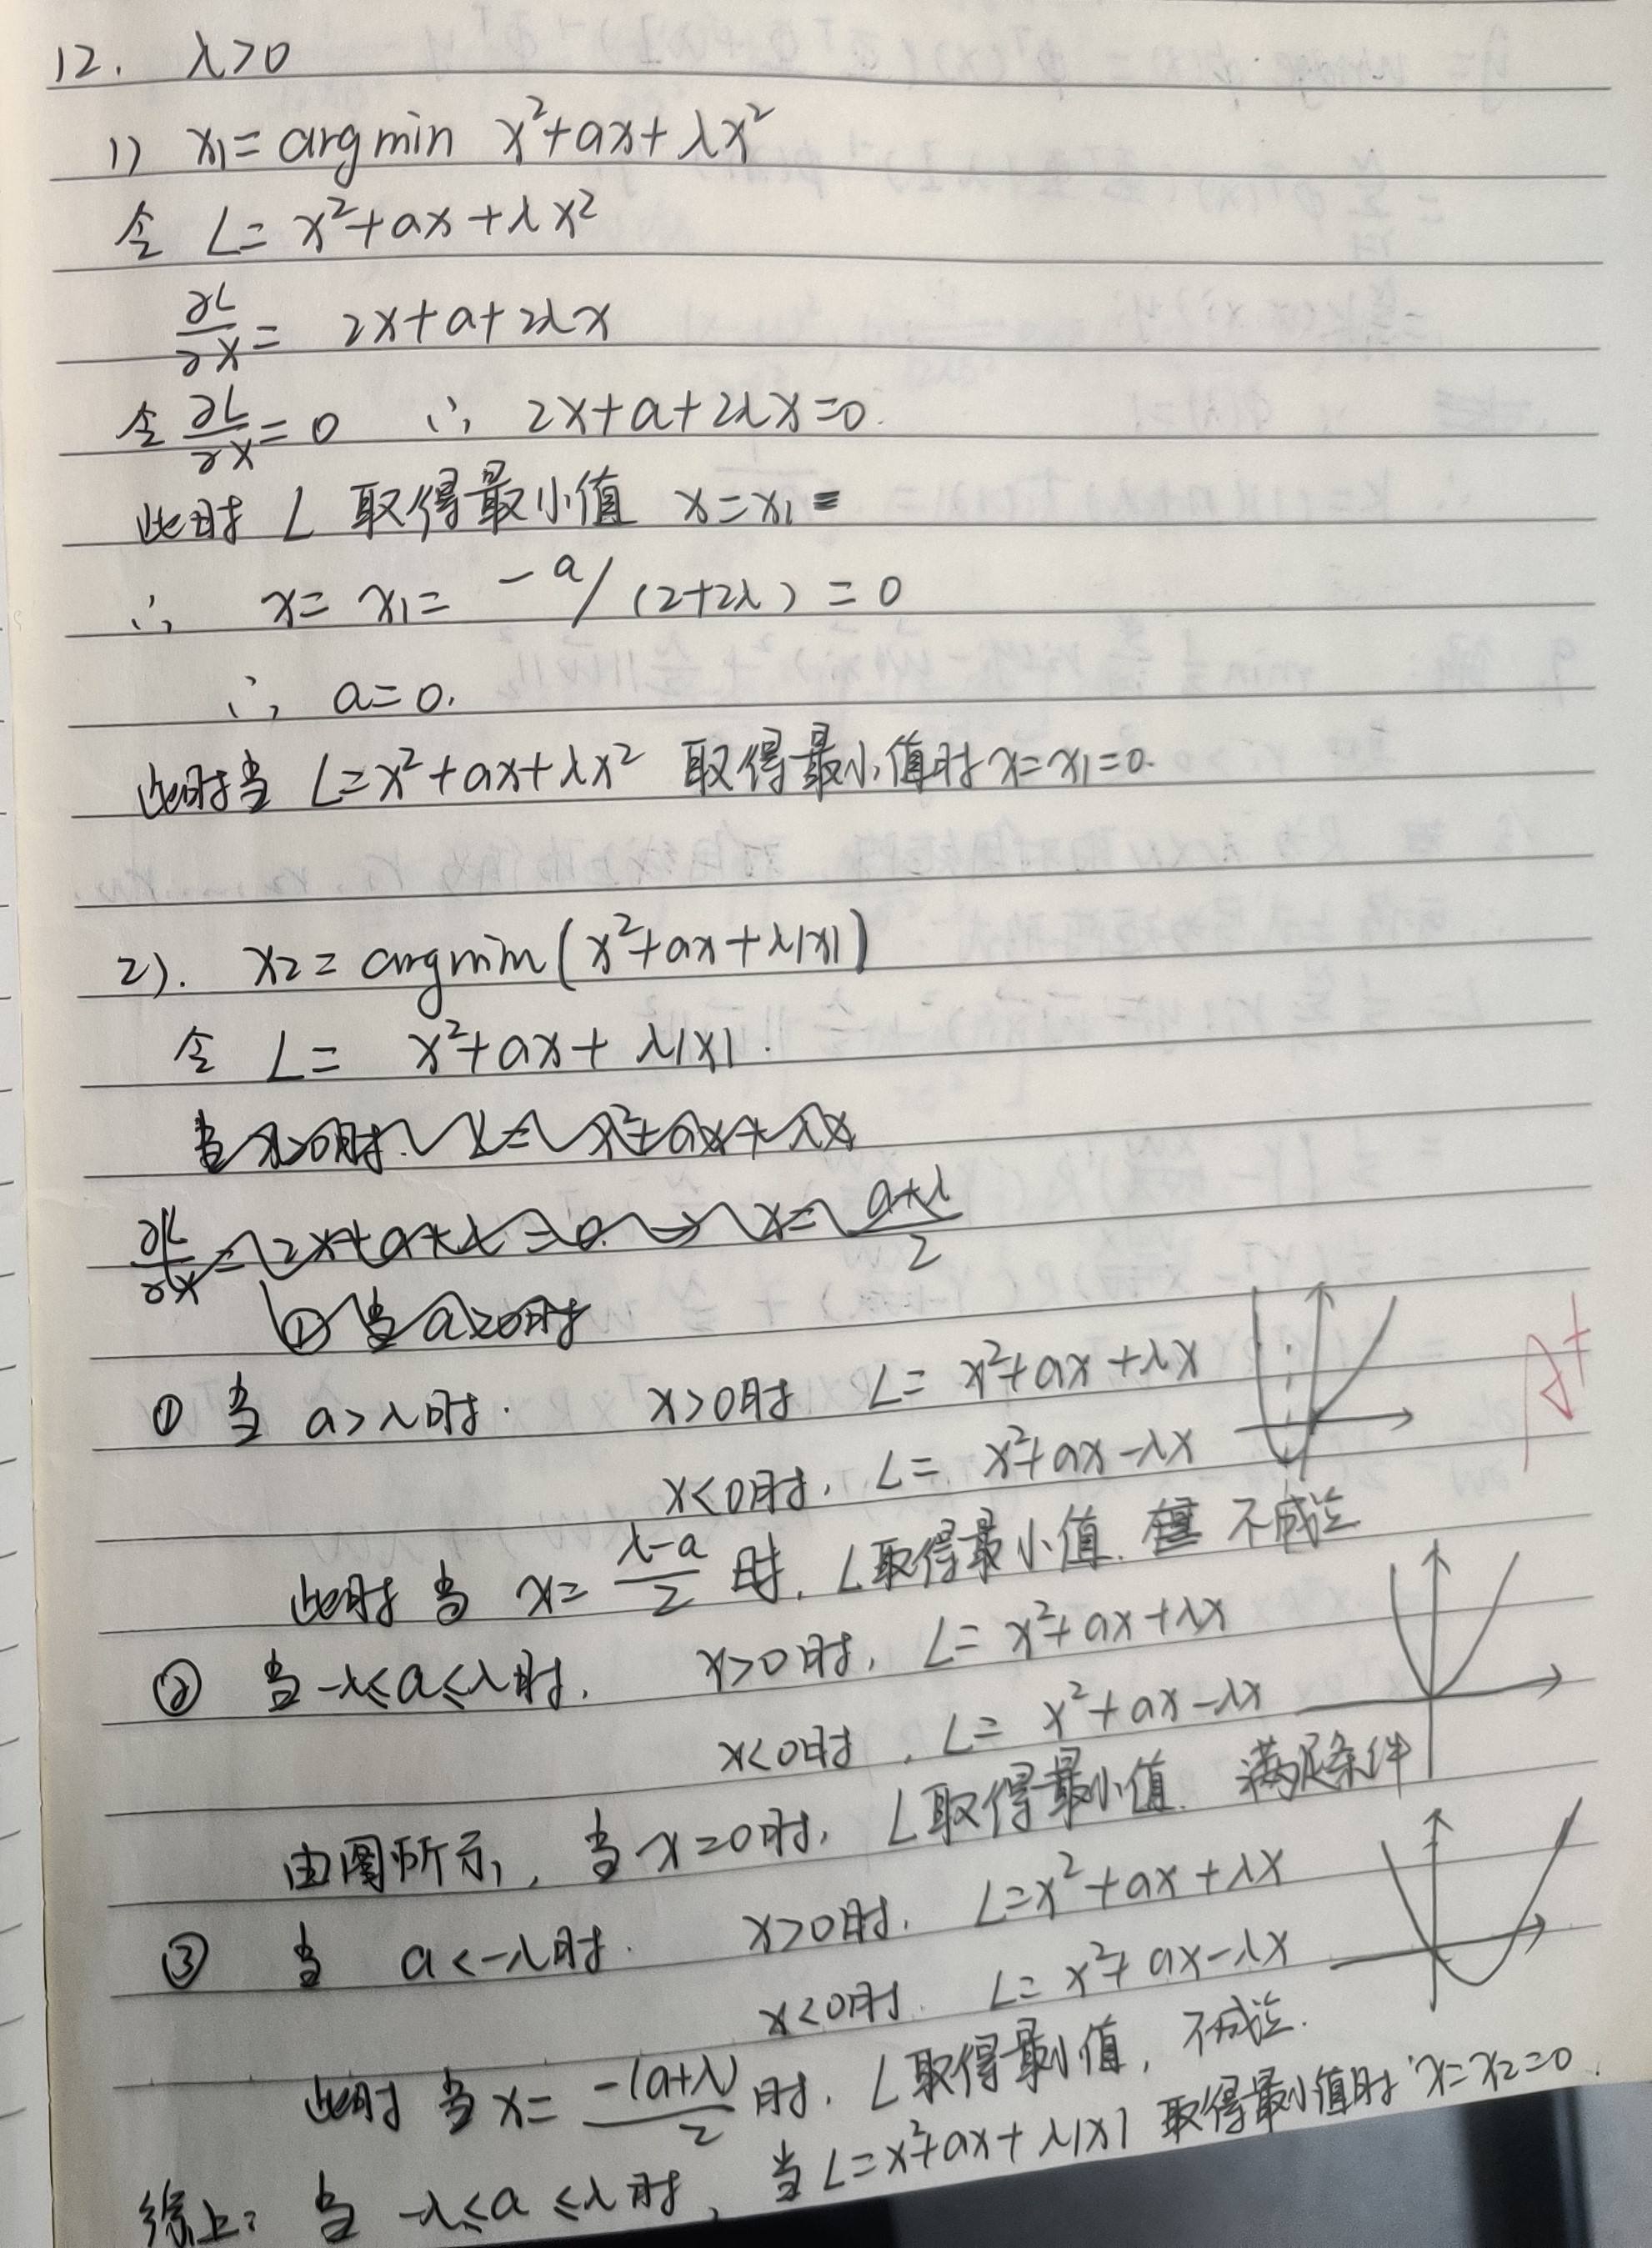 12. λ>0
1) x₁= argmin x²+ax+λx²
令 L= x²+ax+λx²
∂L/∂x = 2x+a+2λx
令 ∂L/∂x = 0 ∴ 2x+a+2λx=0.
此时 L 取得最小值 x=x₁=
∴ x= x₁= -a/(2+2λ) = 0
∴ a=0.
此时当 L=x²+ax+λx² 取得最小值时 x=x₁=0.
2). x₂= argmin(x²+ax+λ|x|)
令 L= x²+ax+λ|x|.
当x>0时. L= x²+ax+λx
∂L/∂x = 2x+a+λ=0 → x= (a+λ)/2
① 当a≥0时
① 当 a>λ时. x>0时 L= x²+ax+λx
x<0时, L= x²+ax-λx
此时 当 x= (λ-a)/2 时, L取得最小值. 不成立
② 当-λ≤a≤λ时. x>0时, L= x²+ax+λx
x<0时, L= x²+ax-λx
由图所示, 当x=0时, L取得最小值. 满足条件
③ 当 a<-λ时. x>0时. L=x²+ax+λx
x<0时. L= x²+ax-λx
此时 当x= -(a+λ)/2 时. L取得最小值, 不成立.
综上: 当 -λ≤a≤λ时, 当L=x²+ax+λ|x| 取得最小值时 x=x₂=0.
A+